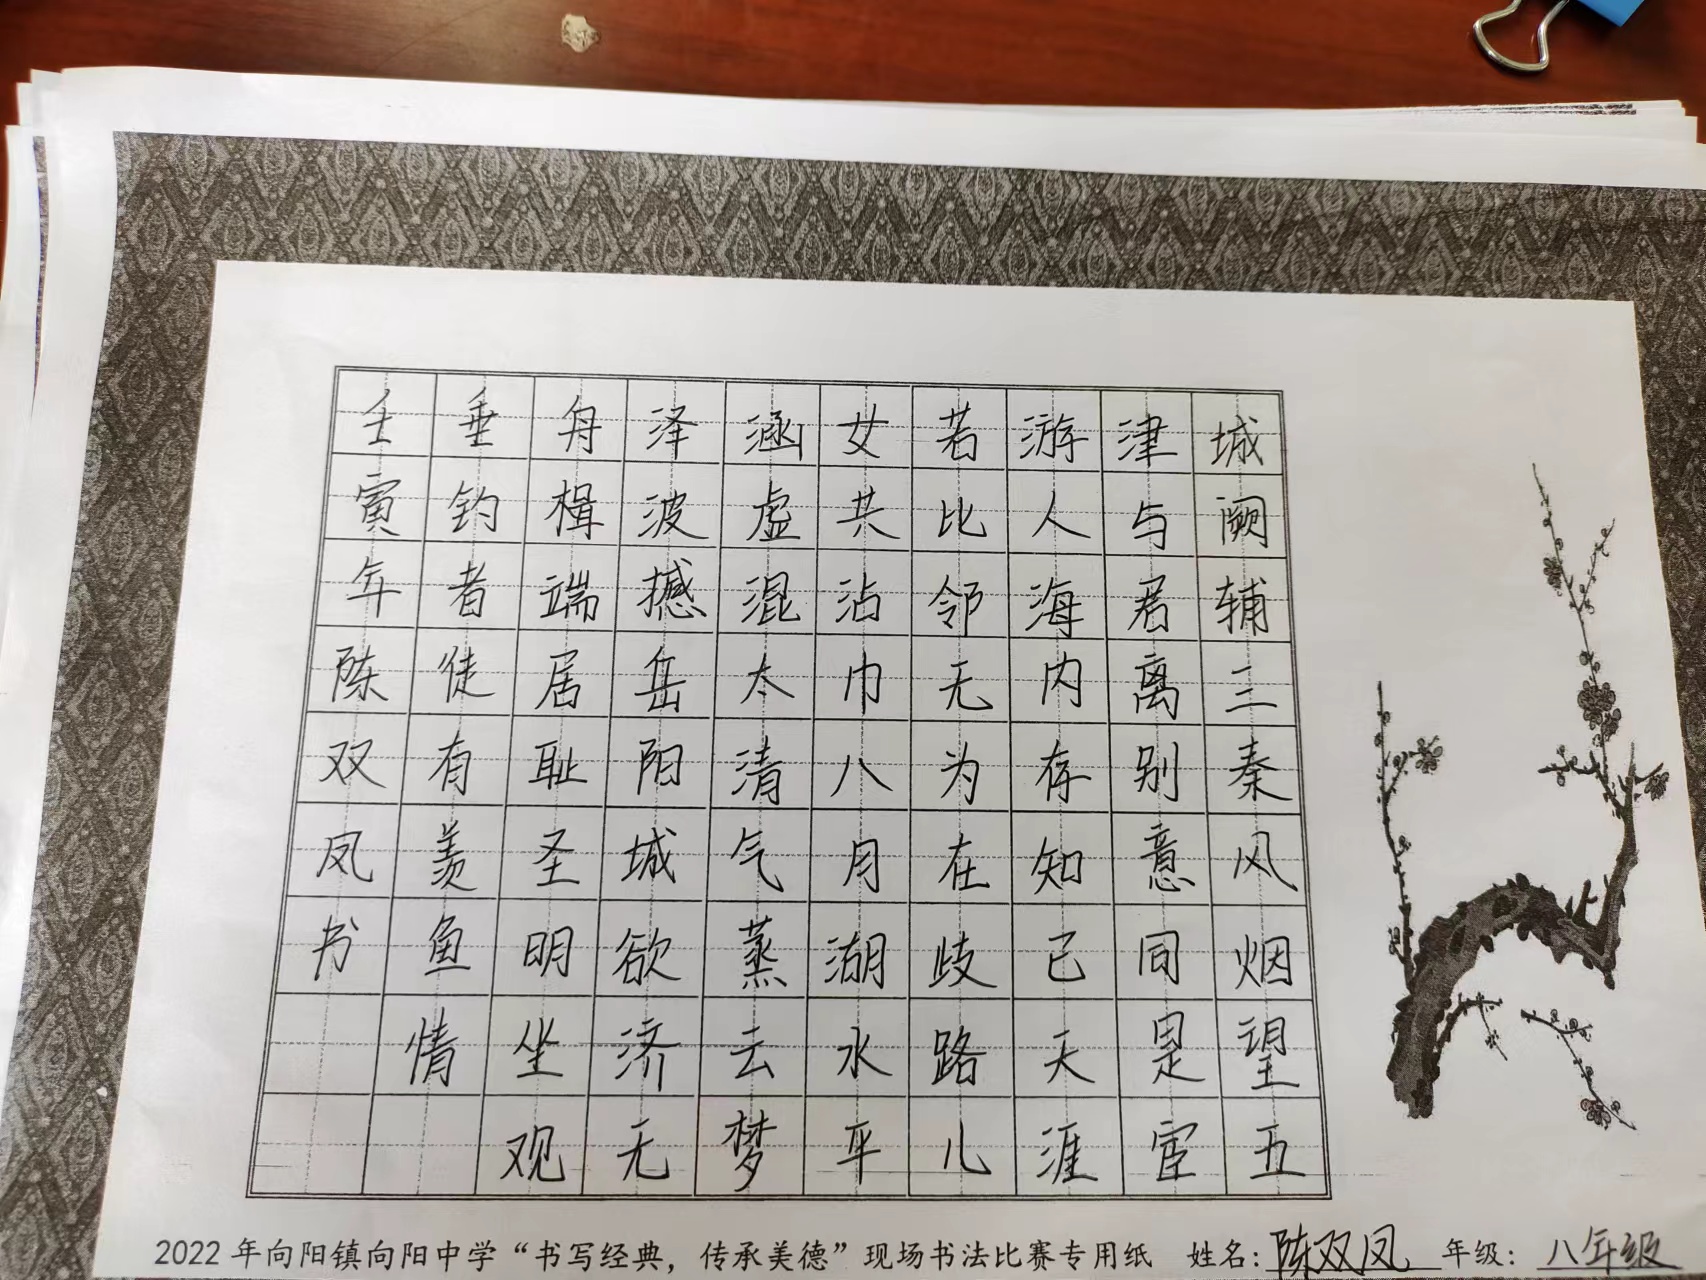 城阙辅三秦风烟望五
津与君离别意同是宦
游人海内存知已天涯
若比邻无为在歧路儿
女共沾巾八月湖水平
涵虚混太清气蒸云梦
泽波撼岳阳城欲济无
舟楫端居耻圣明坐观
垂钓者徒有羡鱼情
壬寅年陈双凤书
2022年向阳镇向阳中学“书写经典，传承美德”现场书法比赛专用纸 姓名：陈双凤 年级：八年级